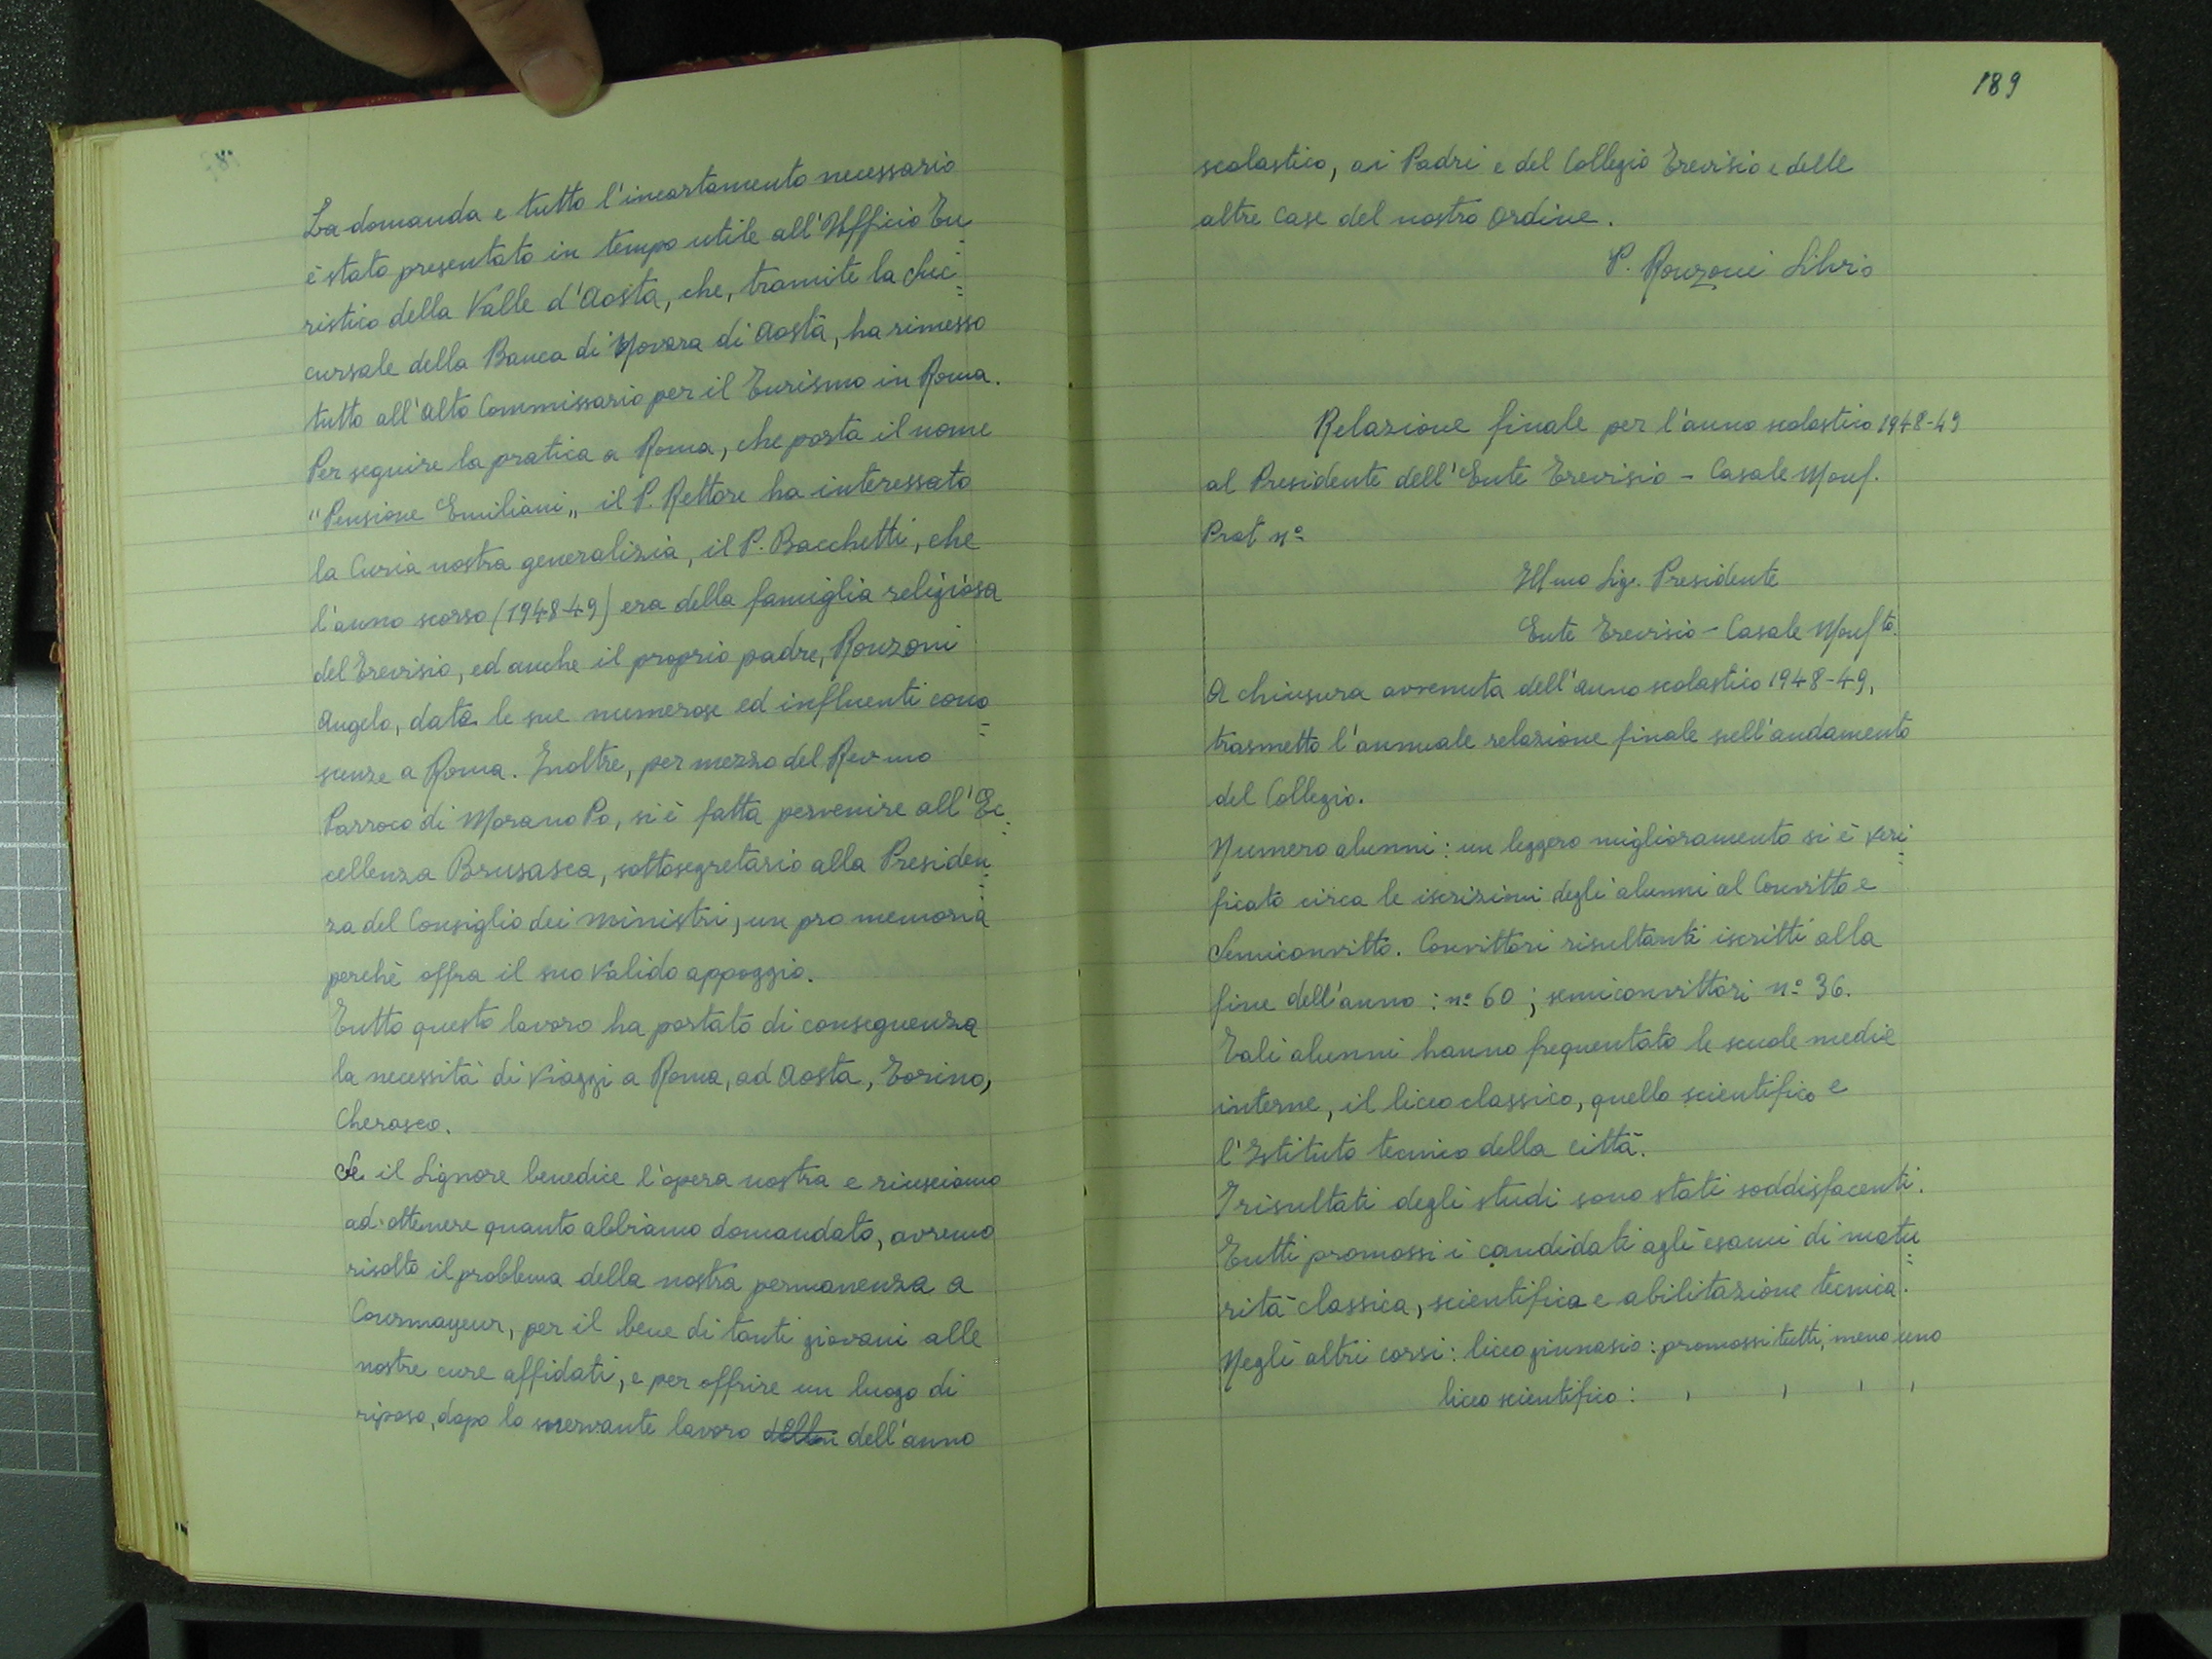 La domanda e tutto l'incartamento necessario
è stato presentato in tempo utile all'Ufficio Tu=
ristico della Valle d'Aosta, che, tramite la suc=
cursale della Banca di Novara di Aosta, ha rimesso
tutto all'Alto Commissario per il Turismo in Roma.
Per seguire la pratica a Roma, che porta il nome
"Pensione Emiliani„ il P. Rettore ha interessato
la Curia nostra generalizia, il P. Bacchetti, che
l'anno scorso (1948-49) era della famiglia religiosa
del Trevisio, ed anche il proprio padre, Ronzoni
Angelo, data le sue numerose ed influenti cono=
scenze a Roma. Inoltre, per mezzo del Revmo
Parroco di Morano Po, si è fatta pervenire all'Ec=
cellenza Brusasca, sottosegretario alla Presiden=
za del Consiglio dei ministri, un pro memoria
perchè offra il suo valido appoggio.
Tutto questo lavoro ha portato di conseguenza
la necessità di viaggi a Roma, ad Aosta, Torino,
Cherasco.
Se il Signore benedice l'opera nostra e riusciamo
ad ottenere quanto abbiamo domandato, avremo
risolto il problema della nostra permanenza a
Courmayeur, per il bene di tanti giovani alle
nostre cure affidati, e per offrire un luogo di
riposo, dopo lo snervante lavoro dell'anno
189
scolastico, ai Padri e del Collegio Trevisio e delle
altre case del nostro ordine.
P. Ronzoni Silvio
Relazione finale per l'anno scolastico 1948-49
al Presidente dell'Ente Trevisio - Casale Monf.
Prot nº
Ill mo Sig. Presidente
Ente Trevisio - Casale Monfto.
A chiusura avvenuta dell'anno scolastico 1948-49,
trasmetto l'annuale relazione finale sull'andamento
del Collegio.
Numero alunni: un leggero miglioramento si è veri=
ficato circa le iscrizioni degli alunni al Convitto e
Semiconvitto. Convittori risultanti iscritti alla
fine dell'anno: nº 60; semiconvittori nº 36.
Tali alunni hanno frequentato le scuole medie
interne, il liceo classico, quello scientifico e
l'Istituto tecnico della città.
I risultati degli studi sono stati soddisfacenti.
Tutti promossi i candidati agli esami di matu=
rità classica, scientifica e abilitazione tecnica.
Negli altri corsi: liceo ginnasio: promossi tutti, meno uno
liceo scientifico: ' ' ' '